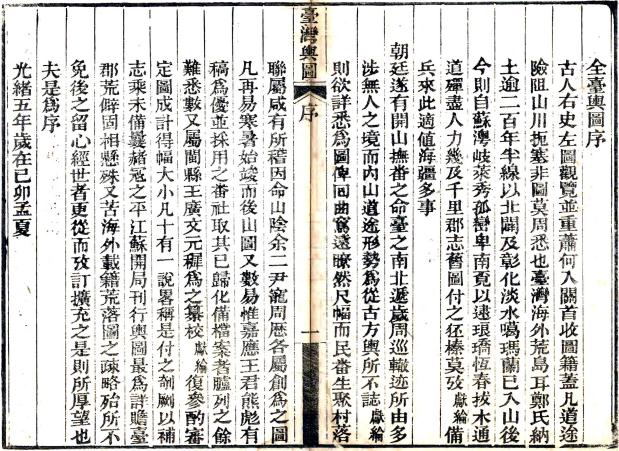 全臺輿圖序
古人右史左圖觀覽並重蕭何入關首收圖籍蓋凡道途
險阻山川扼塞非圖莫周悉也臺灣海外荒島耳鄭氏納
土逾二百年半線以北闢及彰化淡水噶瑪蘭已入山後
今則自蘇澳岐萊秀孤巒卑南覓以逮琅𤩝恆春拔木通
道殫盡人力幾及千里郡志舊圖付之狉榛莫攷獻綸備
兵來此適值海疆多事
朝廷遂有開山撫番之命臺之南北遞歲周巡轍迹所由多
涉無人之境而內山道途形勢為從古方輿所不誌獻綸
則欲詳悉為圖俾回曲窵遠瞭然尺幅而民番生聚村落
臺灣輿圖
序
一
聯屬咸有所稽因命山陰余二尹寵周歷各屬創為之圖
凡再易寒暑始竣而後山圖又數易惟嘉應王君熊彪有
稿為優並採用之番社取其已歸化備檔案者臚列之餘
難悉數又屬閩縣王廣文元穉為之纂校獻綸復參酌審
定圖成計得幅大小凡十有一說畧稱是付之剞劂以補
志乘未備曩赭寇之平江蘇開局刊行輿圖最為詳贍臺
郡荒僻固相懸殊又苦海外載籍荒落圖之疎略殆所不
免後之留心經世者更從而攷訂擴充之是則所厚望也
夫是為序
光緒五年歲在己卯孟夏